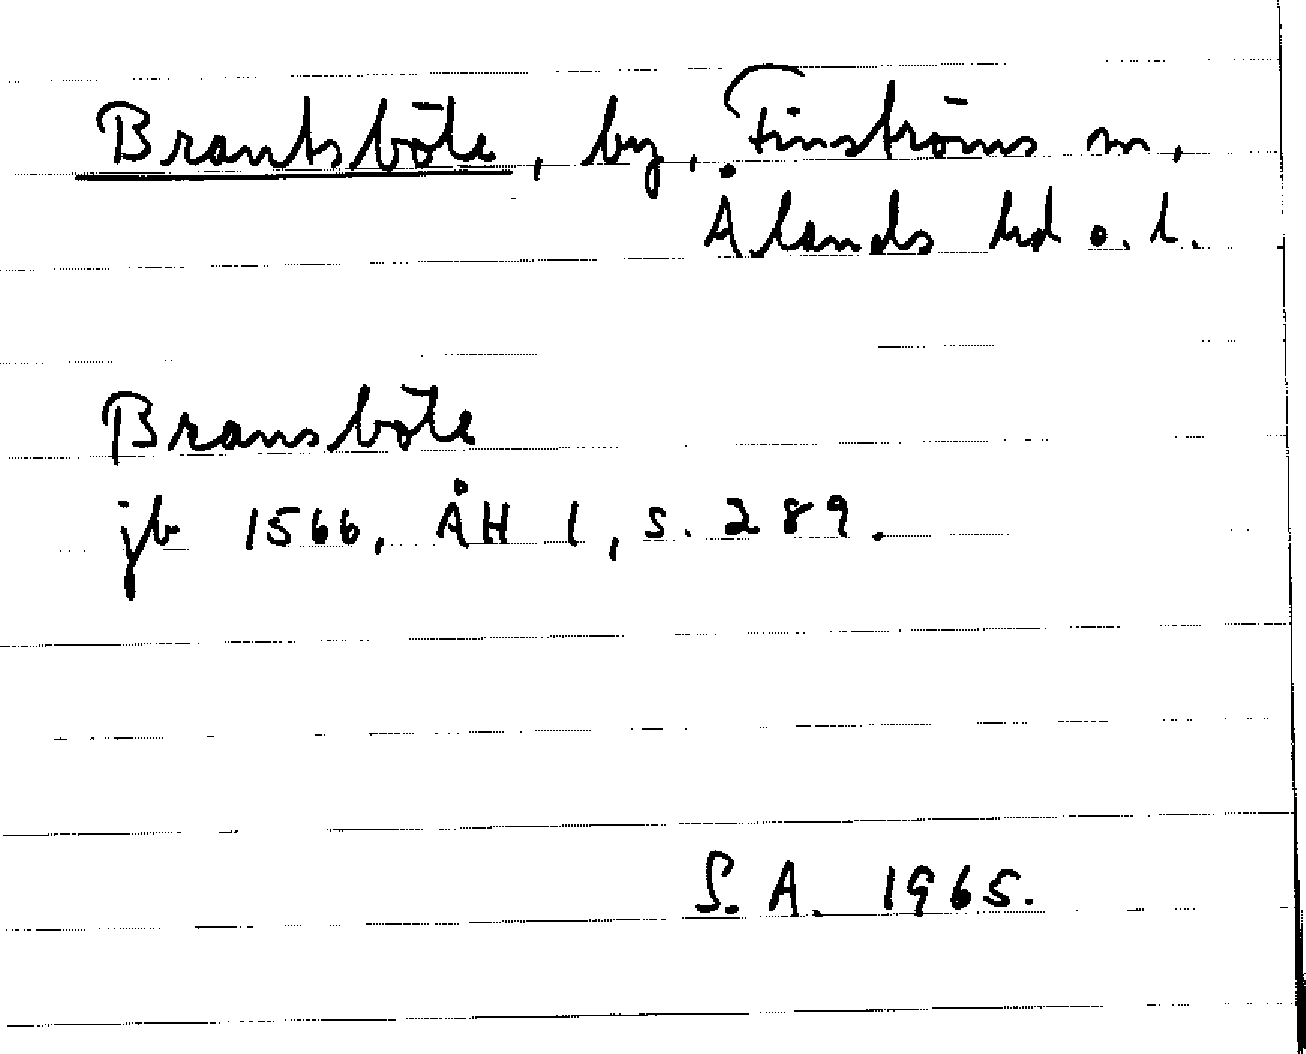 Brantsböle, by, Finströms sn,
Ålands hd o. l.
Bransböle
jb 1566, ÅH 1, s. 289.
S. A. 1965.